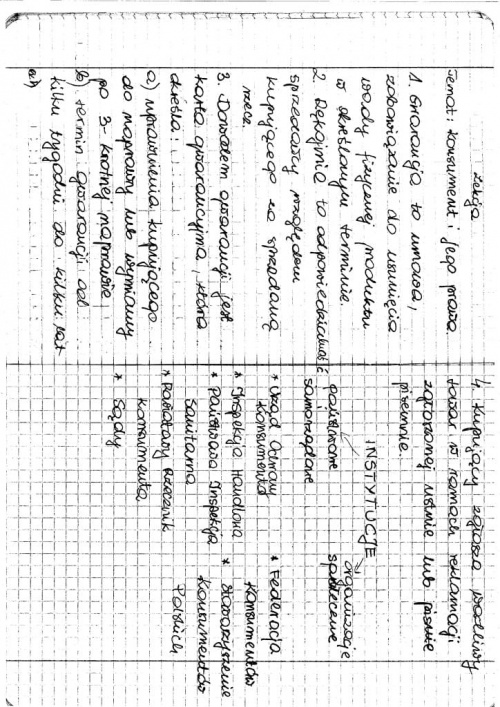 Lekcja
Temat: Konsument i jego prawa
1. Gwarancja to umowa,
zobowiązanie do usunięcia
wady fizycznej produktu
w określonym terminie.
2. Rękojmia to odpowiedzialność
sprzedawcy względem
kupującego za sprzedaną
rzecz.
3. Dowodem gwarancji jest
karta gwarancyjna, która
określa:
a) uprawnienia kupującego
do naprawy lub wymiany
po 3-krotnej naprawie
b) termin gwarancji od
kilku tygodni do kilku lat
4. Kupujący zgłasza wadliwy
towar w ramach reklamacji
zgłoszonej ustnie lub
pisemnie.
INSTYTUCJE
państwowe i
samorządowe
* Urząd Ochrony
Konsumentów
* Inspekcja Handlowa
* Państwowa Inspekcja
Sanitarna
* Powiatowy Rzecznik
Konsumenta
* Sądy
organizacje
społeczne
* Federacja
Konsumentów
* Stowarzyszenie
Konsumentów
Polskich